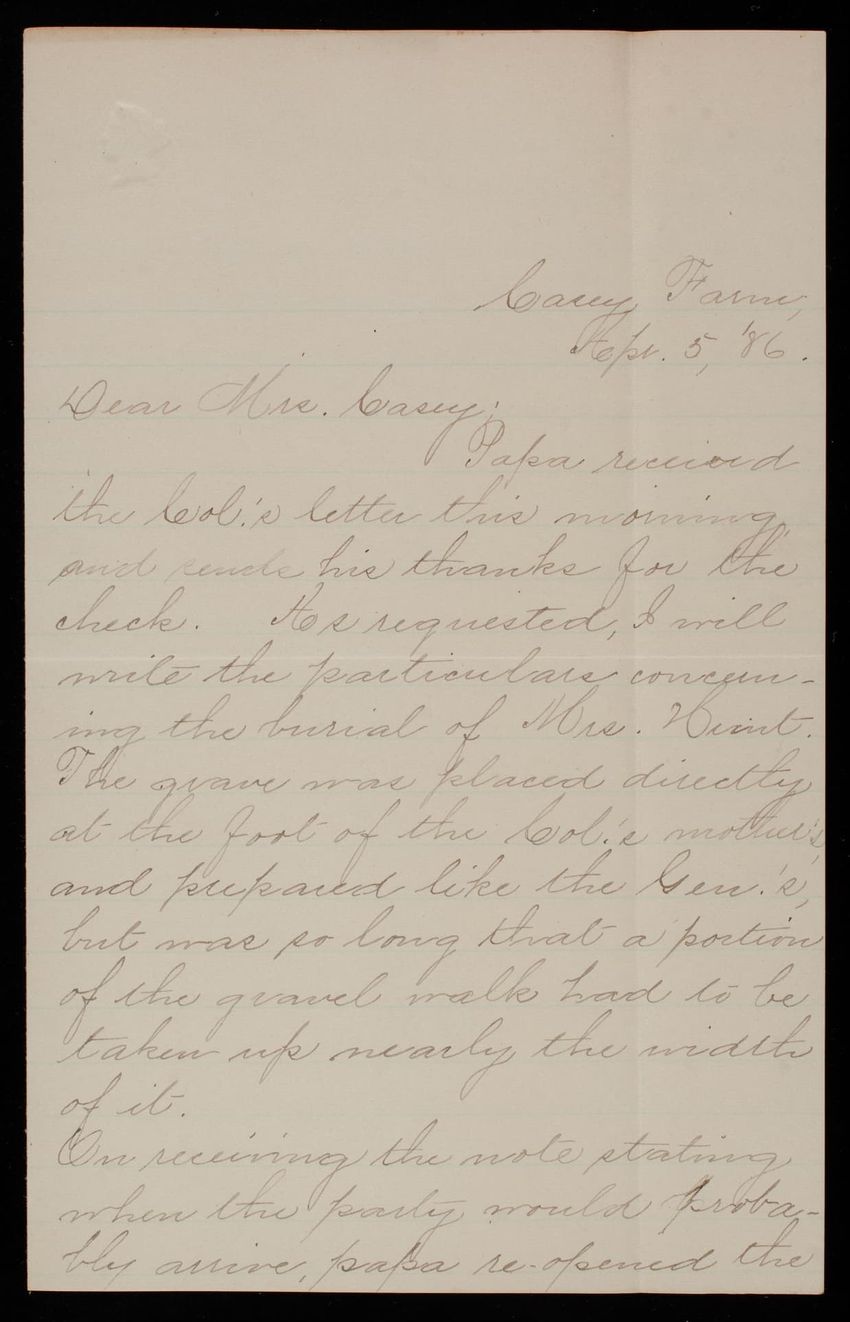 Casey Farm,
Apr. 5, '86.
Dear Mrs. Casey;
Papa received
the Col.'s letter this morning,
and sends his thanks for the
check. As requested, I will
write the particulars concern-
ing the burial of Mrs. Hunt.
The grave was placed directly
at the foot of the Col.'s mother's,
and prepared like the Gen.'s,
but was so long that a portion
of the gravel walk had to be
taken up nearly the width
of it.
On receiving the note stating
when the party would proba-
bly arrive, papa re-opened the